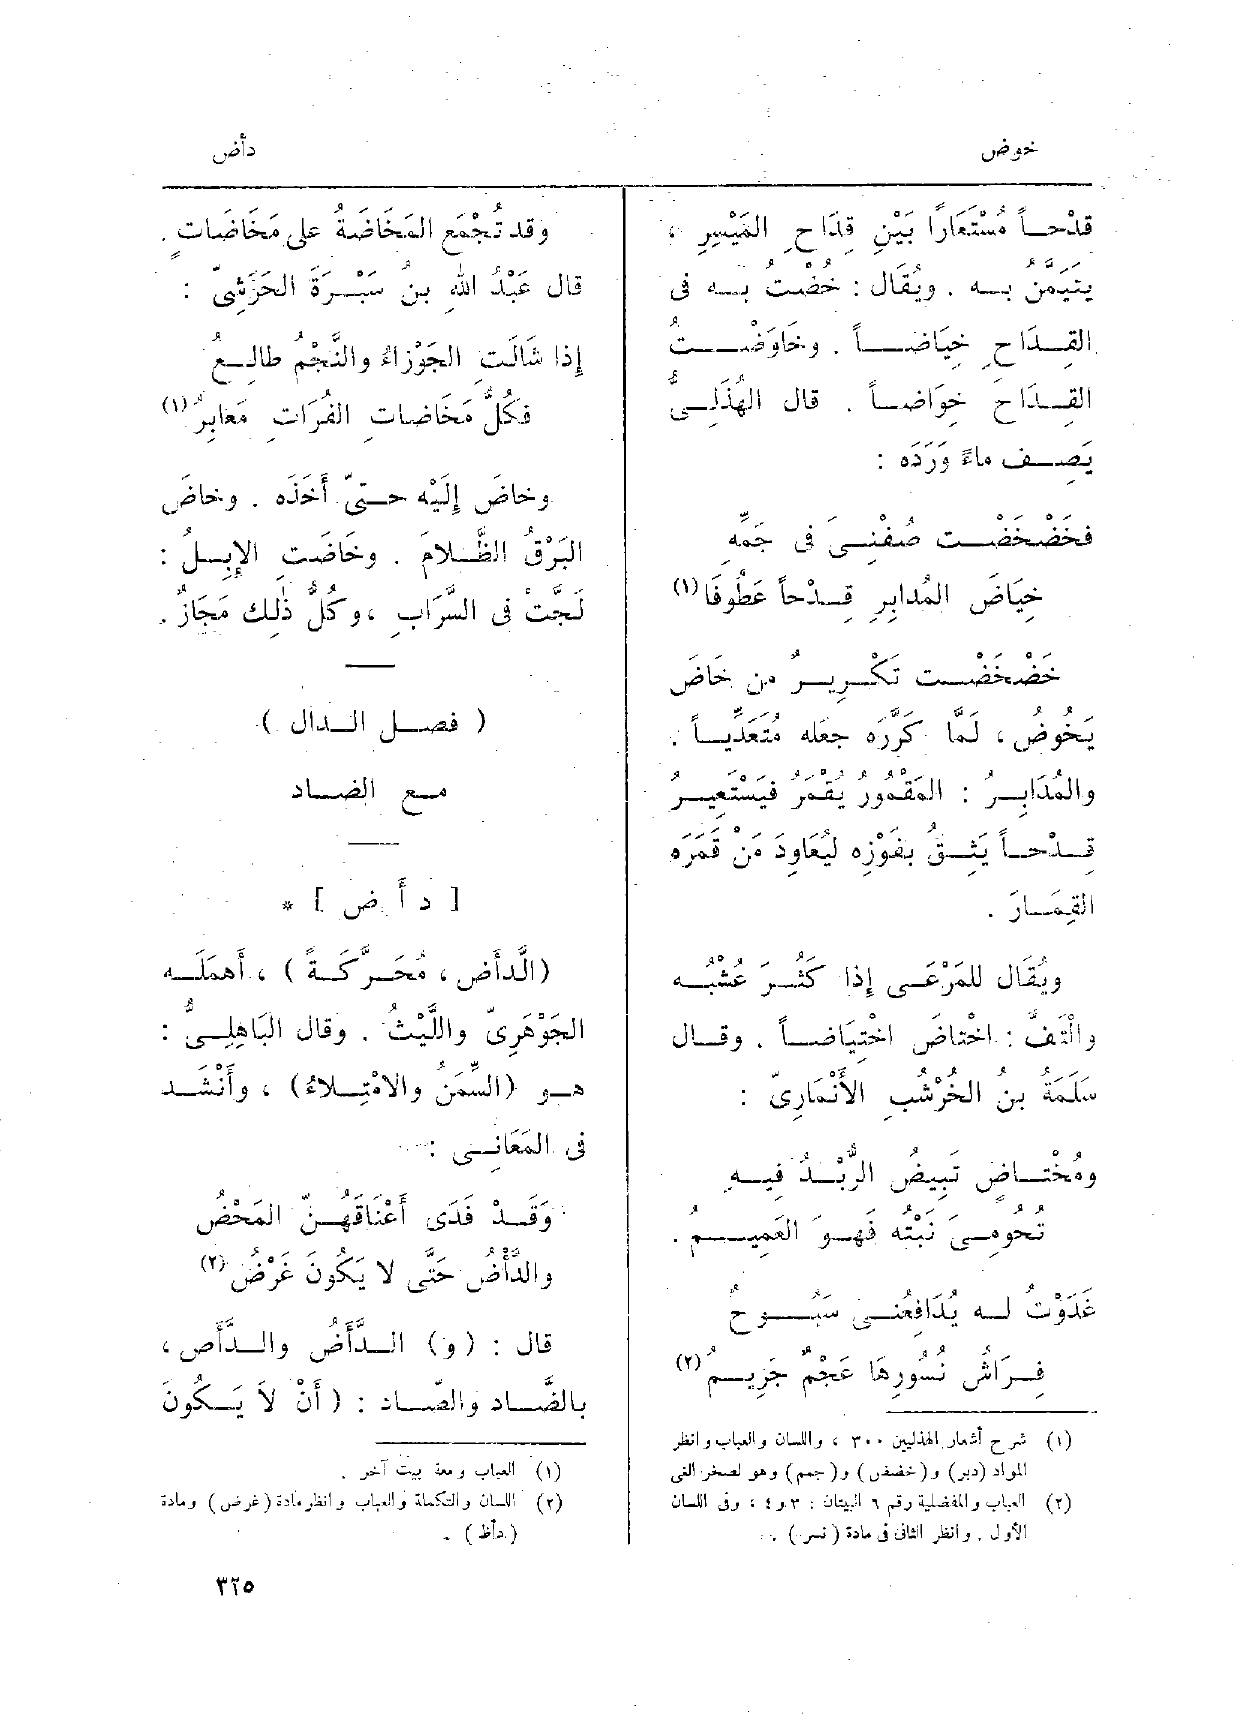 خوض
دأض
قِدْحــاً مُسْتَعَارًا بَيْن قِدَاحِ المَيْسِرِ ،
يَتَيَمَّنُ بــه . ويُقَال : خُضْتُ بــه فى
القِــدَاحِ خِيَاضــاً . وخَاوَضْــتُ
القِــدَاحَ خِوَاضــاً . قال الهُذَلِــىُّ
يَصــف ماءً وَرَدَه :
فخَضْخَضْــت صُفْنِــىَ فى جَمِّهِ
خِيَاضَ المُدَابِرِ قِــدْحاً عَطُوفَا (١)
خَضْخَضْــت تَكْــرِيــرٌ من خَاضَ
يَخُوضُ ، لَمَّا كَرَّرَه جعَله مُتَعَدِّيــاً .
والمُدَابِــرُ : المَقْمُورُ يُقْمَرُ فيَسْتَعِيــرُ
قِــدْحــاً يَثِــقُ بفَوْزِه ليُعَاوِدَ مَنْ قَمَرَه
القِمَــارَ .
ويُقَال للمَرْعَــى إِذا كَثُــرَ عُشْبُــه
والْتَفَّ : اخْتَاضَ اخْتِيَاضــاً . وقــال
سَلَمَةُ بنُ الخُرْشُبِ الأَنْمَارِىّ :
ومُخْتــاضٍ تَبِيضُ الرُّبْــدُ فِيــهِ
تُحُومِــىَ نَبْتُه فَهــوَ العَمِيــمُ .
غَدَوْتُ لــه يُدَافِعُنــى سَبُــوحٌ
فِــرَاشُ نُسُورِهَا عَجْمٌ جَرِيــم (٢)
(١) شرح أشعار الهذليين ٣٠٠ ، واللسان والعباب وانظر
المواد (دبر) و (خضض) و (جمم) وهو لصخر الغى
(٢) العباب والمفضلية رقم ٦ البيتان : ٣ و ٤ ، وفى اللسان
الأول . وانظر الثانى فى مادة (نسر) .
وقد تُجْمَع المَخَاضَةُ على مَخَاضَاتٍ .
قال عَبْدُ اللهِ بنُ سَبْــرَةَ الحَرَشِىّ :
إِذا شَالَتِ الجَوْزاءُ والنَّجْمُ طالِــعُ
فكُلُّ مَخَاضاتِ الفُرَاتِ مَعَابِرُ (١)
وخاضَ إِلَيْه حــتىّ أَخَذَه . وخاضَ
البَرْقُ الظَّــلامَ . وخَاضَت الإِبِــلُ :
لَجَّتْ فى السَّرَابِ ، وكُلُّ ذٰلِك مَجَازٌ .
( فصــل الــدال )
مــع الضــاد
[ د أ ض ] *
(الدَّأَض ، مُحَــرَّكَــةً ) ، أَهمَلَــه
الجَوْهَرِىّ واللَّيْثُ . وقال البَاهِلِــىُّ :
هــو (السِّمَنُ والامْتِــلاءُ) ، وأَنْشَــد
فى المَعَانِــى :
وَقَــدْ فَدَى أَعْنَاقَهُــنّ المَحْضُ
والدَّأْضُ حَتَّى لا يَكُونَ غَرْضُ (٢)
قال : (و) الــدَّأَضُ والــدَّأَص ،
بالضّــاد والصّــاد : ( أَنْ لَا يَــكُونَ
(١) العباب ومعه بيت آخر .
(٢) اللسان والتكملة والعباب وانظر مادة (غرض) ومادة
(دأظ) .
٣٢٥